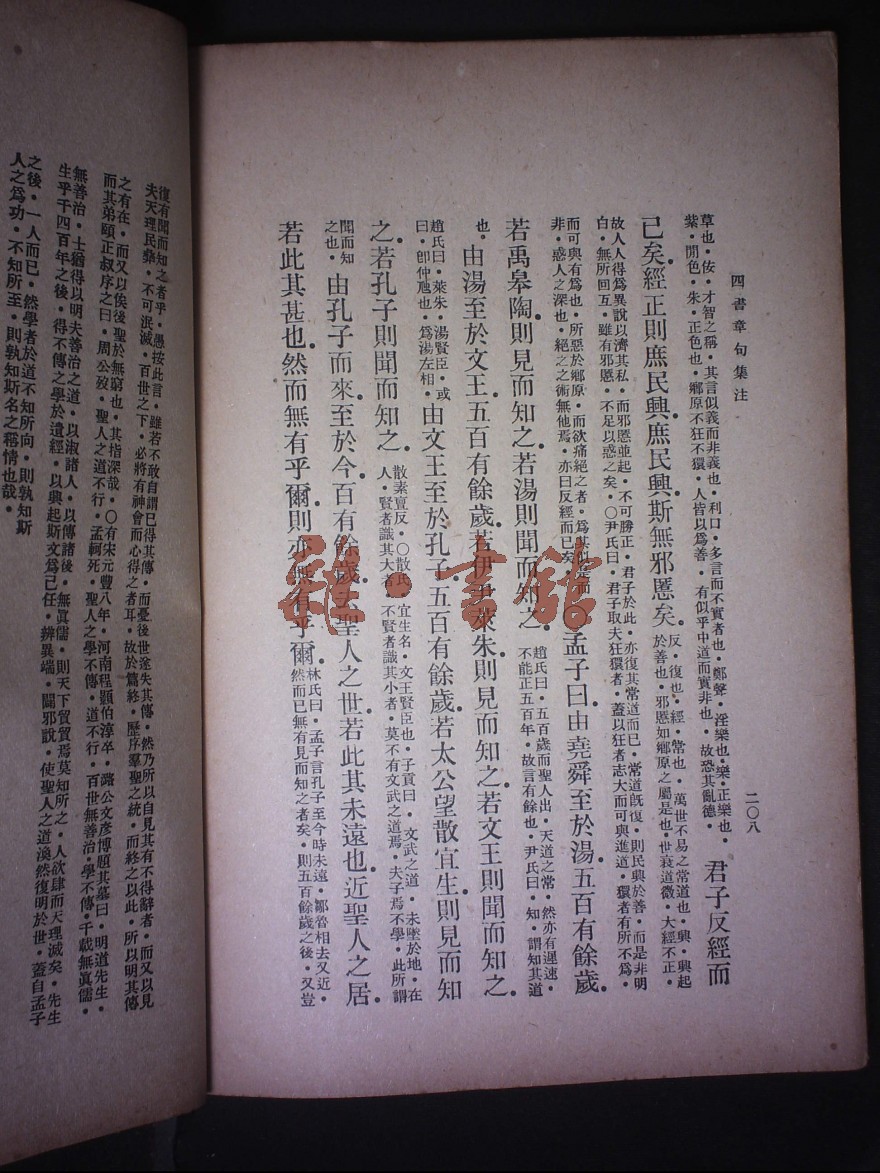 四書章句集注
二〇八
草也・佞・才智之稱・其言似義而非義也・利口・多言而不實者也・鄭聲・淫樂也・樂・正樂也・
紫・閒色・朱・正色也・鄉原不狂不獧・人皆以爲善・有似乎中道而實非也・故恐其亂德・
君子反經而
已矣・經正則庶民興・庶民興・斯無邪慝矣・
反・復也・經・常也・萬世不易之常道也・興・興起
於善也・邪慝如鄉原之屬是也・世衰道微・大經不正・
故人人得爲異說以濟其私・而邪慝並起・不可勝正・君子於此・亦復其常道而已・常道旣復・則民興於善・而是非明
白・無所回互・雖有邪慝・不足以惑之矣・〇尹氏曰・君子取夫狂獧者・蓋以狂者志大而可與進道・獧者有所不爲・
而可與有爲也・所惡於鄉原・而欲痛絕之者・爲其似是而
非・惑人之深也・絕之之術無他焉・亦曰反經而已矣・
〇孟子曰・由堯舜至於湯・五百有餘歲・
若禹皋陶・則見而知之・若湯・則聞而知之・
趙氏曰・五百歲而聖人出・天道之常・然亦有遲速・
不能正五百年・故言有餘也・尹氏曰・知・謂知其道
也・
由湯至於文王・五百有餘歲・若伊尹萊朱・則見而知之・若文王・則聞而知之・
趙氏曰・萊朱・湯賢臣・或
曰・卽仲虺也・爲湯左相・
由文王至於孔子・五百有餘歲・若太公望散宜生・則見而知
之・若孔子・則聞而知之・
散素亶反・〇散氏・宜生名・文王賢臣也・子貢曰・文武之道・未墜於地・在
人・賢者識其大者・不賢者識其小者・莫不有文武之道焉・夫子焉不學・此所謂
聞而知
之也・
由孔子而來・至於今・百有餘歲・去聖人之世・若此其未遠也・近聖人之居・
若此其甚也・然而無有乎爾・則亦無有乎爾・
林氏曰・孟子言孔子至今時未遠・鄒魯相去又近・
然而已無有見而知之者矣・則五百餘歲之後・又豈
復有聞而知之者乎・愚按此言・雖若不敢自謂已得其傳・而憂後世遂失其傳・然乃所以自見其有不得辭者・而又以見
夫天理民彝・不可泯滅・百世之下・必將有神會而心得之者耳・故於篇終・歷序羣聖之統・而終之以此・所以明其傳
之有在・而又以俟後聖於無窮也・其指深哉・〇有宋元豐八年・河南程顥伯淳卒・潞公文彥博題其墓曰・明道先生・
而其弟頤正叔序之曰・周公歿・聖人之道不行・孟軻死・聖人之學不傳・道不行・百世無善治・學不傳・千載無眞儒・
無善治・士猶得以明夫善治之道・以淑諸人・以傳諸後・無眞儒・則天下貿貿焉莫知所之・人欲肆而天理滅矣・先生
生乎千四百年之後・得不傳之學於遺經・以興起斯文爲己任・辨異端・闢邪說・使聖人之道渙然復明於世・蓋自孟子
之後・一人而已・然學者於道不知所向・則孰知斯
人之爲功・不知所至・則孰知斯名之稱情也哉・
雜・書館